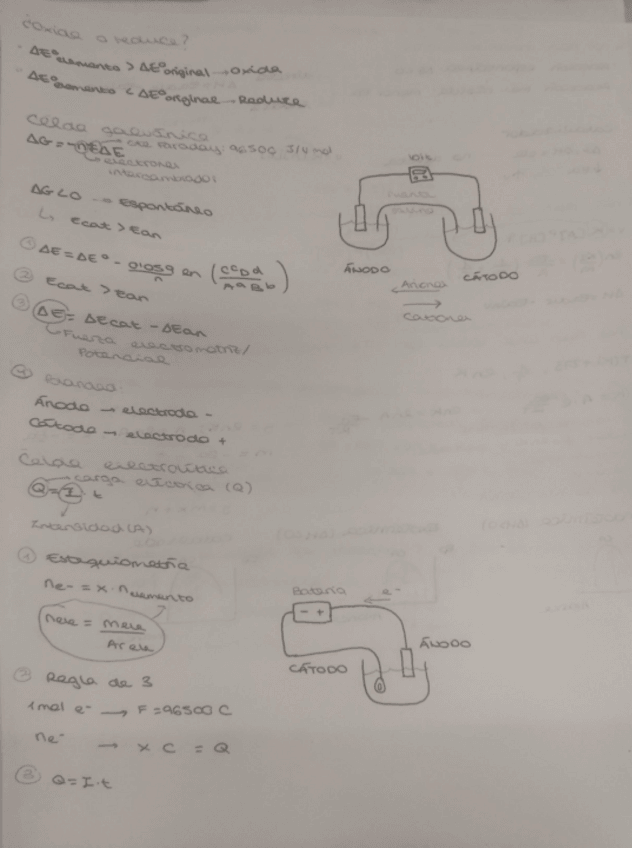 ¿Oxida o reduce?
· ΔEº elemento > ΔEº original → Oxida
· ΔEº elemento < ΔEº original → Reduce
Celda galvánica
ΔG = -nFΔE
cte Faraday: 96500 J/V mol
electrones
intercambiados
ΔG<0 → Espontáneo
↳ Ecat > Ean
① ΔE = ΔEº - 0'059/n en (C^c D^d / A^a B^b)
② Ecat > Ean
③ ΔE = ΔEcat - ΔEan
↳ Fuerza electromotriz/
Potencial
④ Polaridad:
Ánodo → electrodo -
Cátodo → electrodo +
ÁNODO
CÁTODO
Aniones
Cationes
Celda electrolítica
carga eléctrica (Q)
Q = I · t
Intensidad (A)
① Estequiometría
ne- = x · nelemento
nele = mele / Ar ele
② Regla de 3
1 mol e- → F = 96500 C
ne- → x C = Q
③ Q = I·t
Batería
e-
- +
ÁNODO
CÁTODO